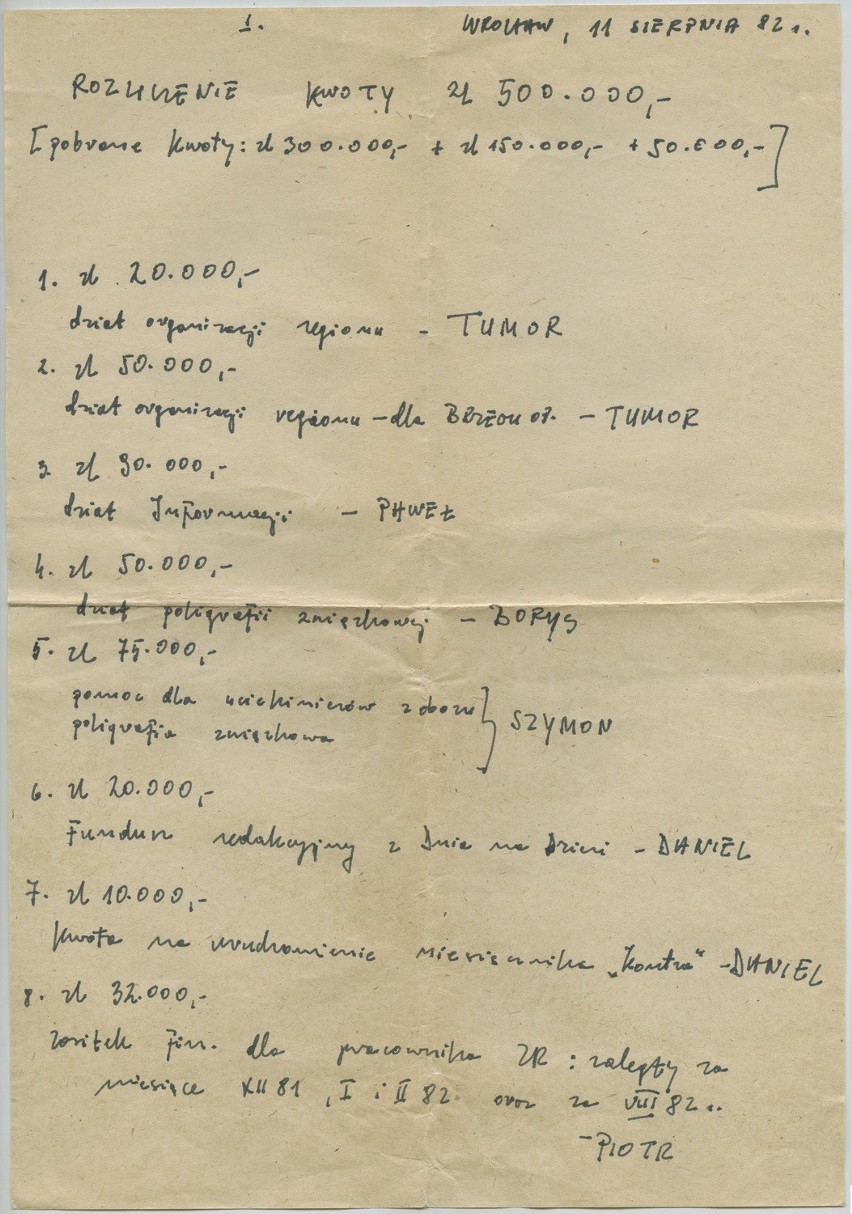 I.
WROCŁAW, 11 SIERPNIA 82 r.
ROZLICZENIE KWOTY zł 500.000,-
[pobrane kwoty: zł 300.000,- + zł 150.000,- + 50.000,-]
1. zł 20.000,-
dział organizacji regionu - TUMOR
2. zł 50.000,-
dział organizacji regionu - dla - TUMOR
3. zł 30.000,-
dział Informacji - PAWEŁ
4. zł 50.000,-
dział poligrafii związkowej - BORYS
5. zł 75.000,-
pomoc dla uciekinierów z obozu
poligrafia związkowa } SZYMON
6. zł 20.000,-
Fundusz redakcyjny z Dnia na Dzień - DANIEL
7. zł 10.000,-
Kwota na uruchomienie miesięcznika „Kontra" - DANIEL
8. zł 32.000,-
zasiłek fin. dla pracownika ZR : zaległy za
miesiące XII 81, I i II 82 oraz za VIII 82 r.
- PIOTR